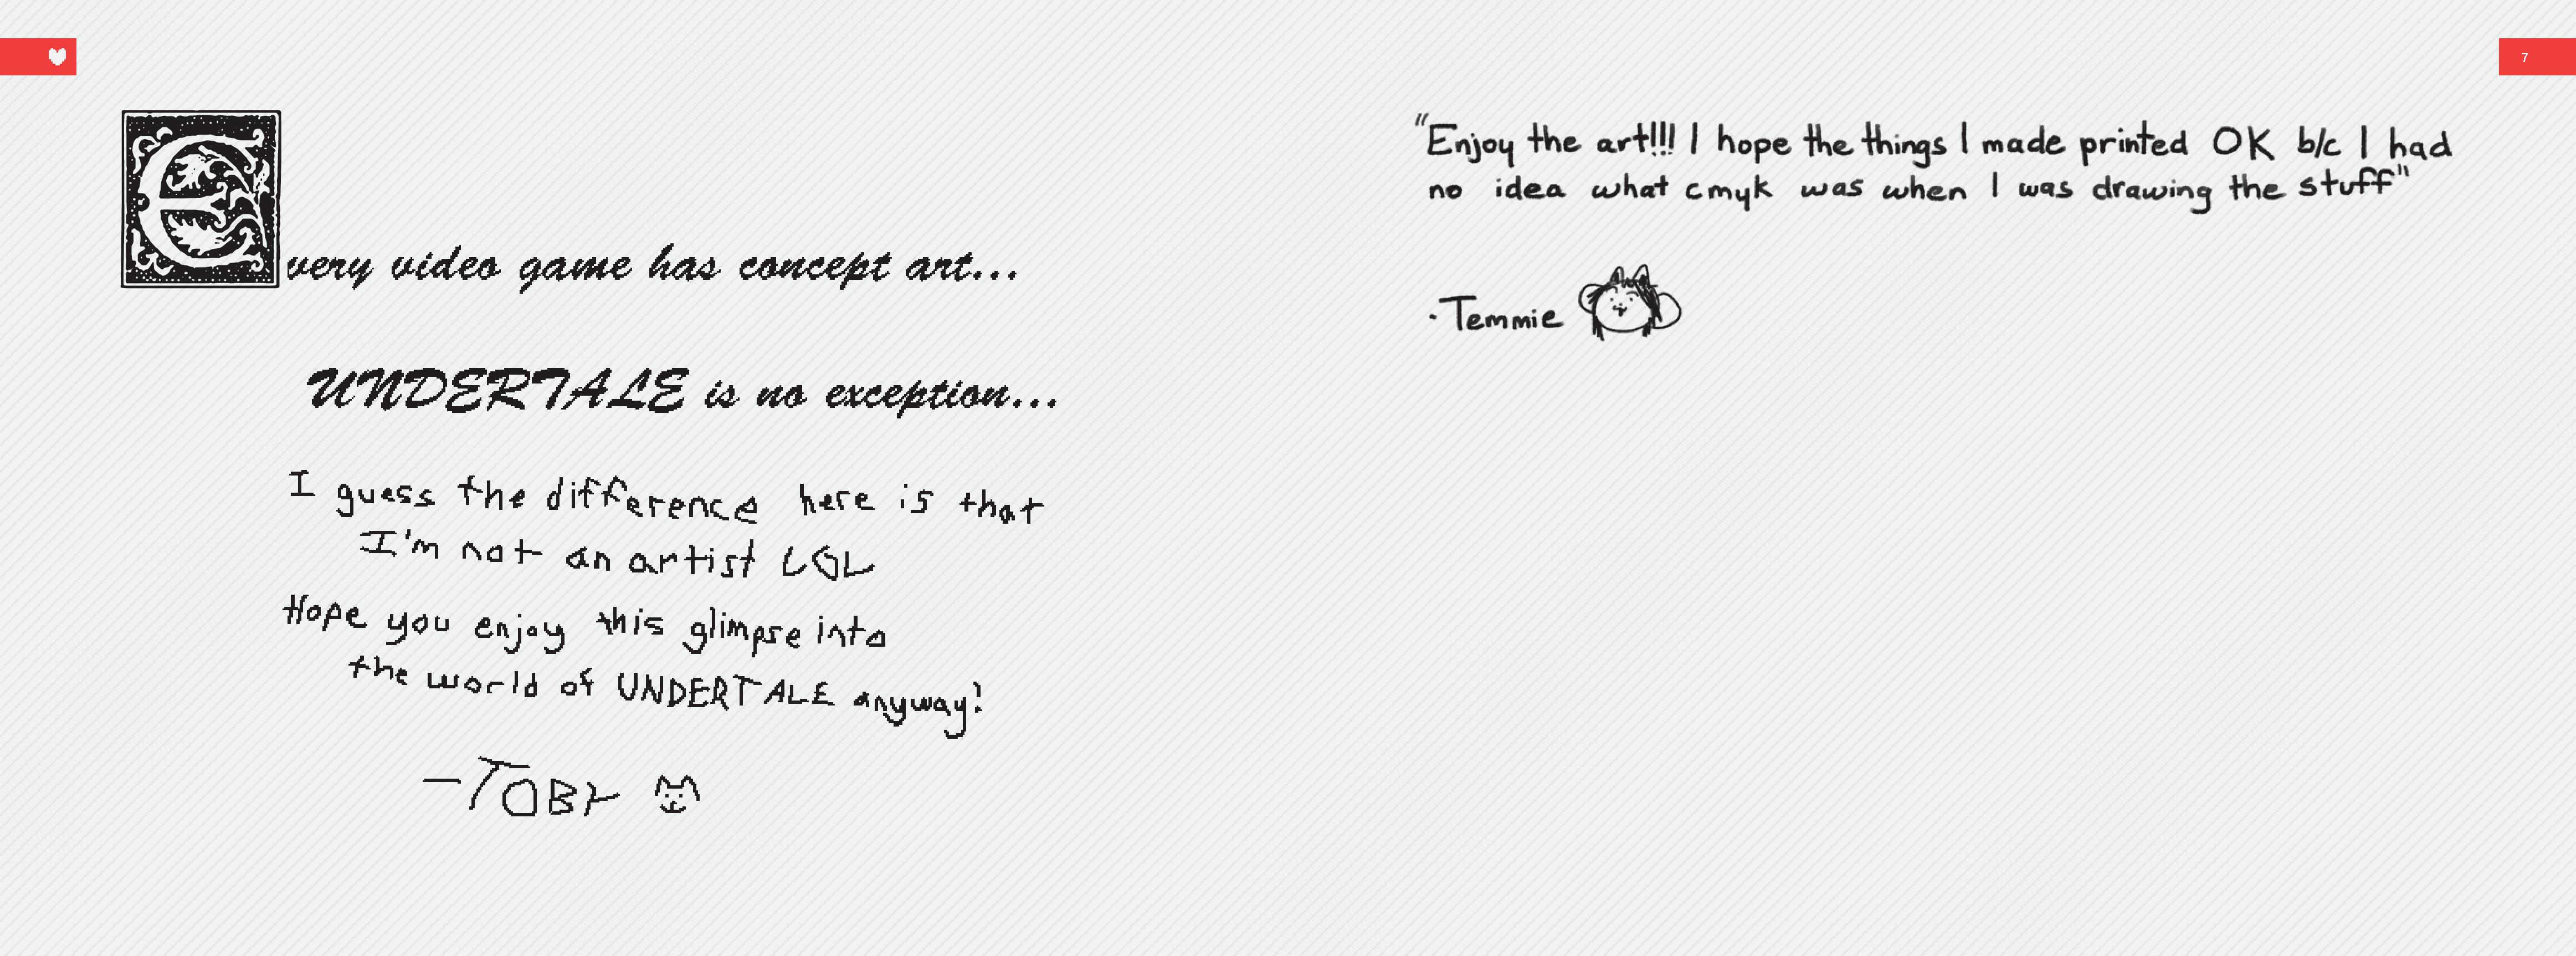 Every video game has concept art...
UNDERTALE is no exception...
I guess the difference here is that
I'm not an artist LOL
Hope you enjoy this glimpse into
the world of UNDERTALE anyway!
—TOBY
7
"Enjoy the art!!! I hope the things I made printed OK b/c I had
no idea what cmyk was when I was drawing the stuff"
-Temmie